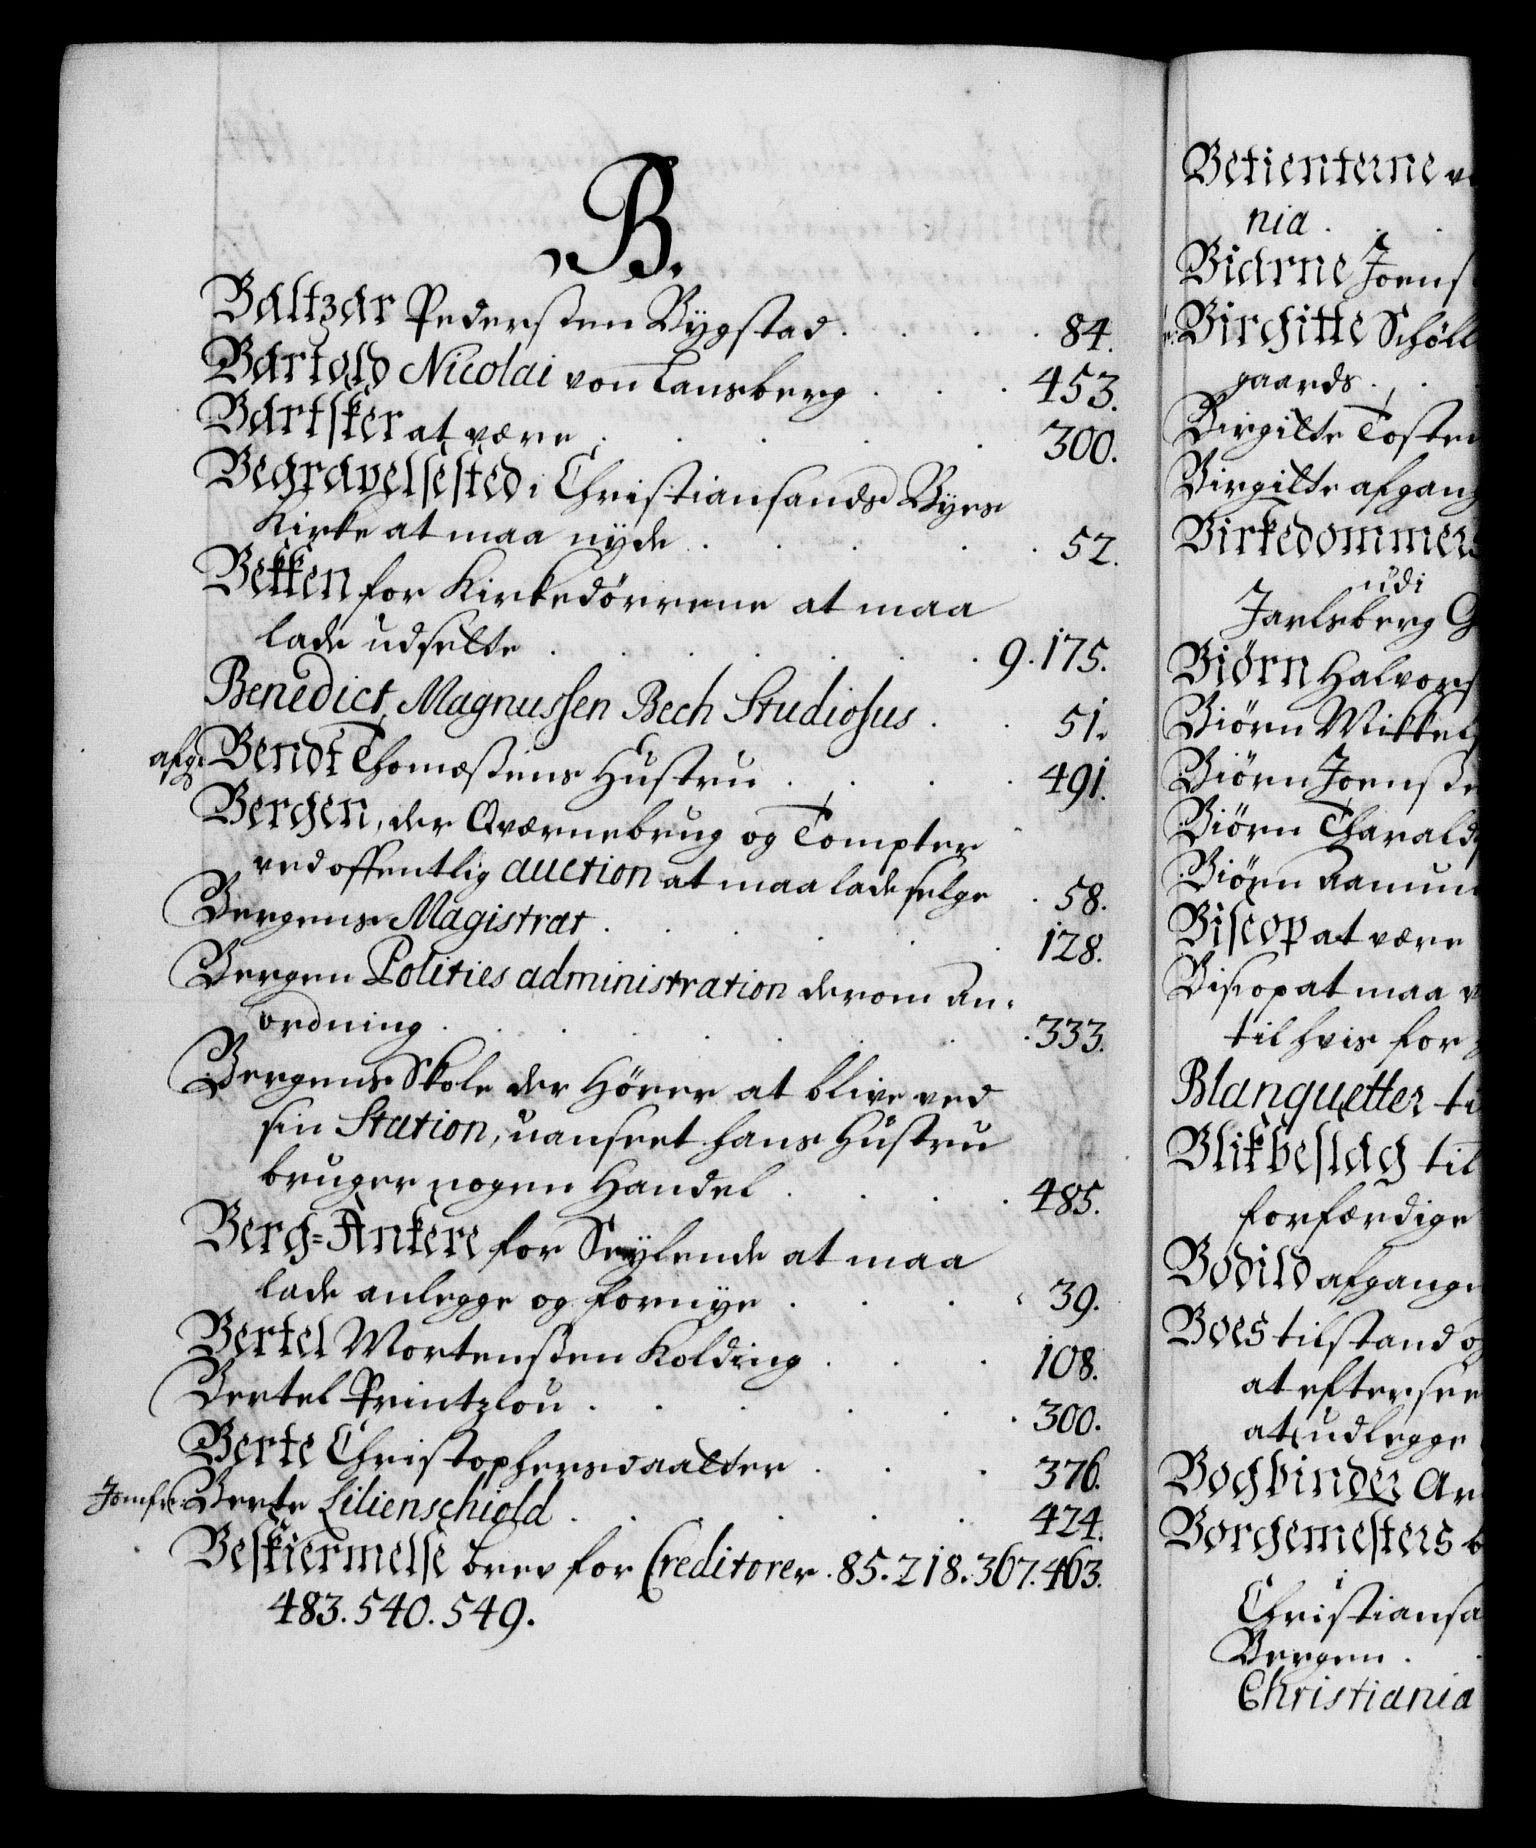 B.
Baltzar Pederszen Bygstad . . . . 84.
Bartold Nicolai von Landsberg . . . 453.
Bartsker at være . . . . . 300.
Begravelsested i Christiansands Byes
Kirke at maa nyde . . . . . 52.
Bekken for Kirkedørrene at maa
lade udsette . . . . . 9. 175.
Benedict Magnussen Bech Studiosus . . 51.
afg: Bendt Thomæszens Hustru . . . . 491.
Bergen, der Qværnebrug og Tompter
ved offentlig auction at maa lade selge . 58.
Bergens Magistrat . . . . . 128.
Bergen Polities administration derom An-
ordning . . . . . . 333.
Bergens Skole der Hører at blive ved
sin Station, uanseet hans Hustru
bruger nogen Handel . . . 485.
Berg=Ankere for Seylende at maa
lade anlegge og fornye . . . 39.
Bertel Mortenszen Kolding . . . 108.
Bertel Printzlou . . . . . 300.
Berte Christophersdaatter . . . 376.
Jomfr: Berte Lilienschiold . . . . . 424.
Beskiermelse brev for Creditorer . 85. 218. 367. 463.
483. 540. 549.
Betienterne
nia . . .
Biarne Joens
Birgitte Schøll
gaards . . .
Birgitte Tosten
Birgitte afgang
Birkedommers
udi
Jarlsberg G
Biørn Halvors
Biørn Mikkels
Biørn Joensze
Biørn Tharalds
Biørn Aamun
Biscop at være
Biscop at maa
til hvis for
Blanquetter ti
Blikbeslag til
forfærdige
Bodild afgange
Boes tilstand o
at eftersee
at udlegge
Bogbinder Ar
Borgemesters b
Christiansa
Bergen .
Christiania